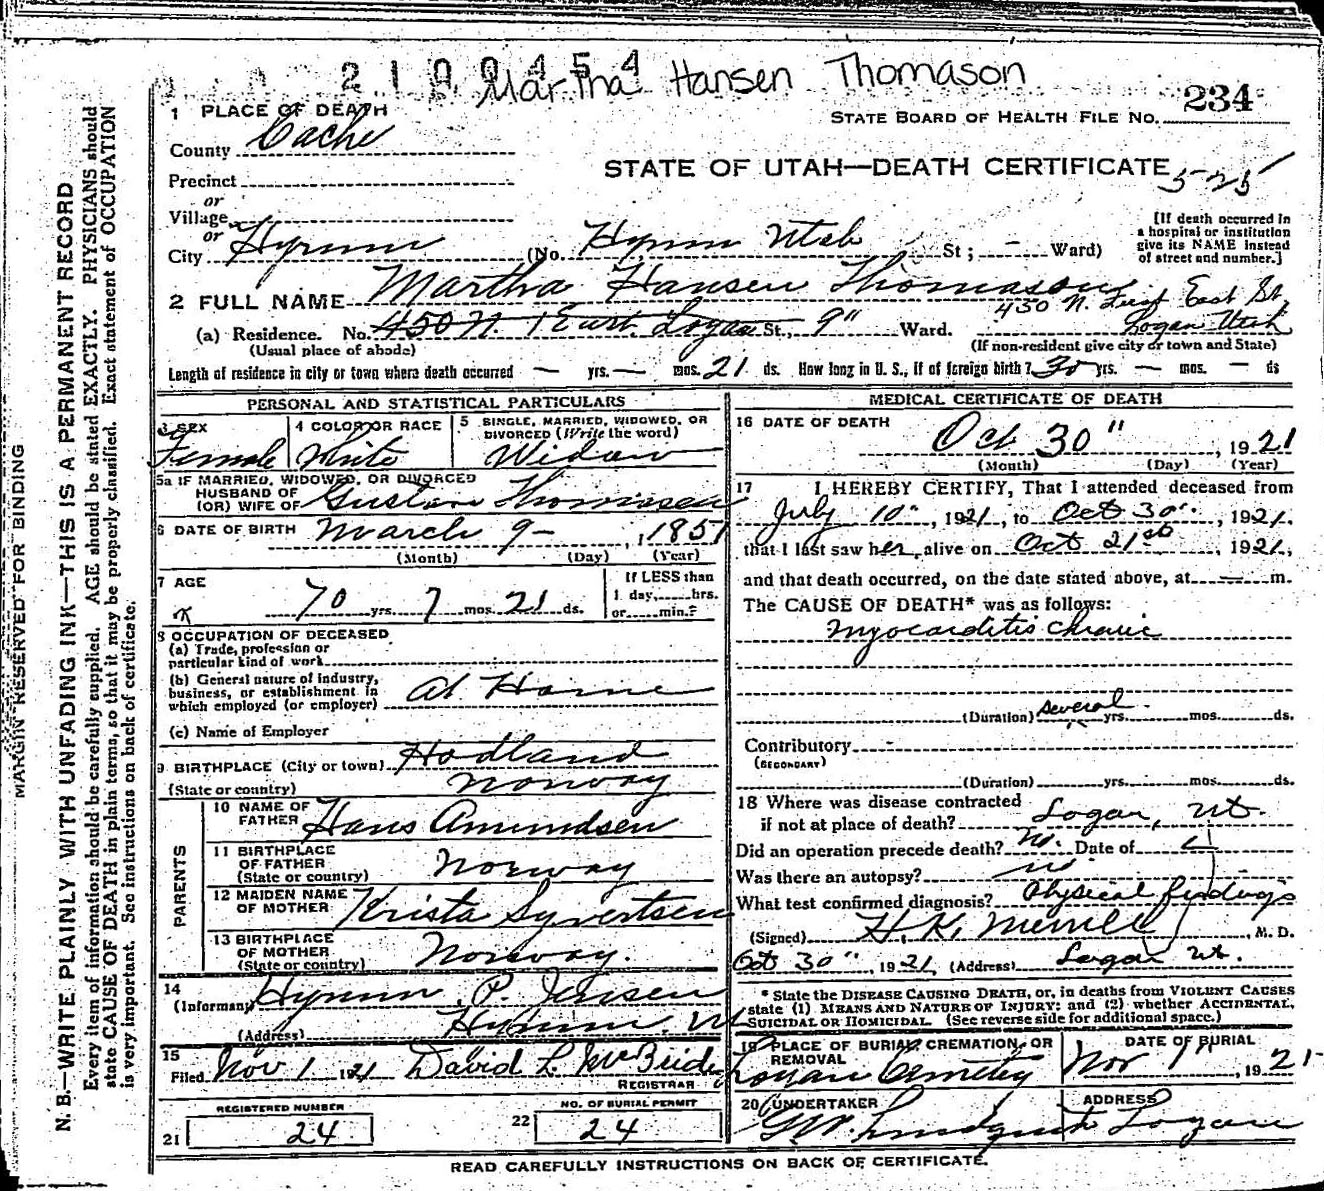 2100454
Martha Hansen Thomason
234
STATE BOARD OF HEALTH FILE NO.
1 PLACE OF DEATH
County Cache
STATE OF UTAH—DEATH CERTIFICATE
525
Precinct
or
Village
or
City Hyrum (No. Hyrum Utah St; - Ward)
[If death occurred in a hospital or institution give its NAME instead of street and number.]
2 FULL NAME Martha Hansen Thomason
450 N. First East St.
(a) Residence. No. 450 N. 1 East Logan St., 9" Ward. Logan Utah
(Usual place of abode) (If non-resident give city or town and State)
Length of residence in city or town where death occurred — yrs. — mos. 21 ds. How long in U. S., if of foreign birth? 30 yrs. — mos. — ds
PERSONAL AND STATISTICAL PARTICULARS
3 SEX Female
4 COLOR OR RACE White
5 SINGLE, MARRIED, WIDOWED, OR DIVORCED (Write the word) Widow
5a IF MARRIED, WIDOWED, OR DIVORCED
HUSBAND OF
(OR) WIFE OF Gustave Thomassen
6 DATE OF BIRTH March 9 - , 1851
(Month) (Day) (Year)
7 AGE 70 yrs 7 mos. 21 ds.
If LESS than
1 day, hrs.
or min.?
8 OCCUPATION OF DECEASED
(a) Trade, profession or
particular kind of work
(b) General nature of industry,
business, or establishment in
which employed (or employer) At Home
(c) Name of Employer
9 BIRTHPLACE (City or town) Hodland
(State or country) Norway
PARENTS
10 NAME OF FATHER Hans Amundsen
11 BIRTHPLACE OF FATHER (State or country) Norway
12 MAIDEN NAME OF MOTHER Krista Syvertsen
13 BIRTHPLACE OF MOTHER (State or country) Norway.
14
(Informant) Hyrum P. Jensen
(Address) Hyrum. Ut
15
Filed Nov 1 1921 David L. McBride
REGISTRAR
REGISTERED NUMBER
21 24
NO. OF BURIAL PERMIT
22 24
MEDICAL CERTIFICATE OF DEATH
16 DATE OF DEATH Oct 30" , 1921
(Month) (Day) (Year)
17 I HEREBY CERTIFY, That I attended deceased from
July 10" , 1921, to Oct 30" , 1921.
that I last saw her alive on Oct 21st , 1921,
and that death occurred, on the date stated above, at — m.
The CAUSE OF DEATH* was as follows:
Myocarditis chronic
(Duration) several yrs. mos. ds.
Contributory -
(SECONDARY)
(Duration) yrs. mos. ds.
18 Where was disease contracted
if not at place of death? Logan, Ut.
Did an operation precede death? No. Date of
Was there an autopsy? no
What test confirmed diagnosis? Physical findings
(Signed) H. K. Merrill , M. D.
Oct 30" , 1921, (Address) Logan Ut.
* State the DISEASE CAUSING DEATH, or, in deaths from VIOLENT CAUSES
state (1) MEANS AND NATURE OF INJURY; and (2) whether ACCIDENTAL,
SUICIDAL OR HOMICIDAL. (See reverse side for additional space.)
19 PLACE OF BURIAL, CREMATION, OR REMOVAL Logan Cemetery
DATE OF BURIAL Nov 1" , 1921
20 UNDERTAKER G.W. Lindquist
ADDRESS Logan
READ CAREFULLY INSTRUCTIONS ON BACK OF CERTIFICATE.
MARGIN RESERVED FOR BINDING
N. B.—WRITE PLAINLY WITH UNFADING INK—THIS IS A PERMANENT RECORD
Every item of information should be carefully supplied. AGE should be stated EXACTLY. PHYSICIANS should
state CAUSE OF DEATH in plain terms, so that it may be properly classified. Exact statement of OCCUPATION
is very important. See instructions on back of certificate.